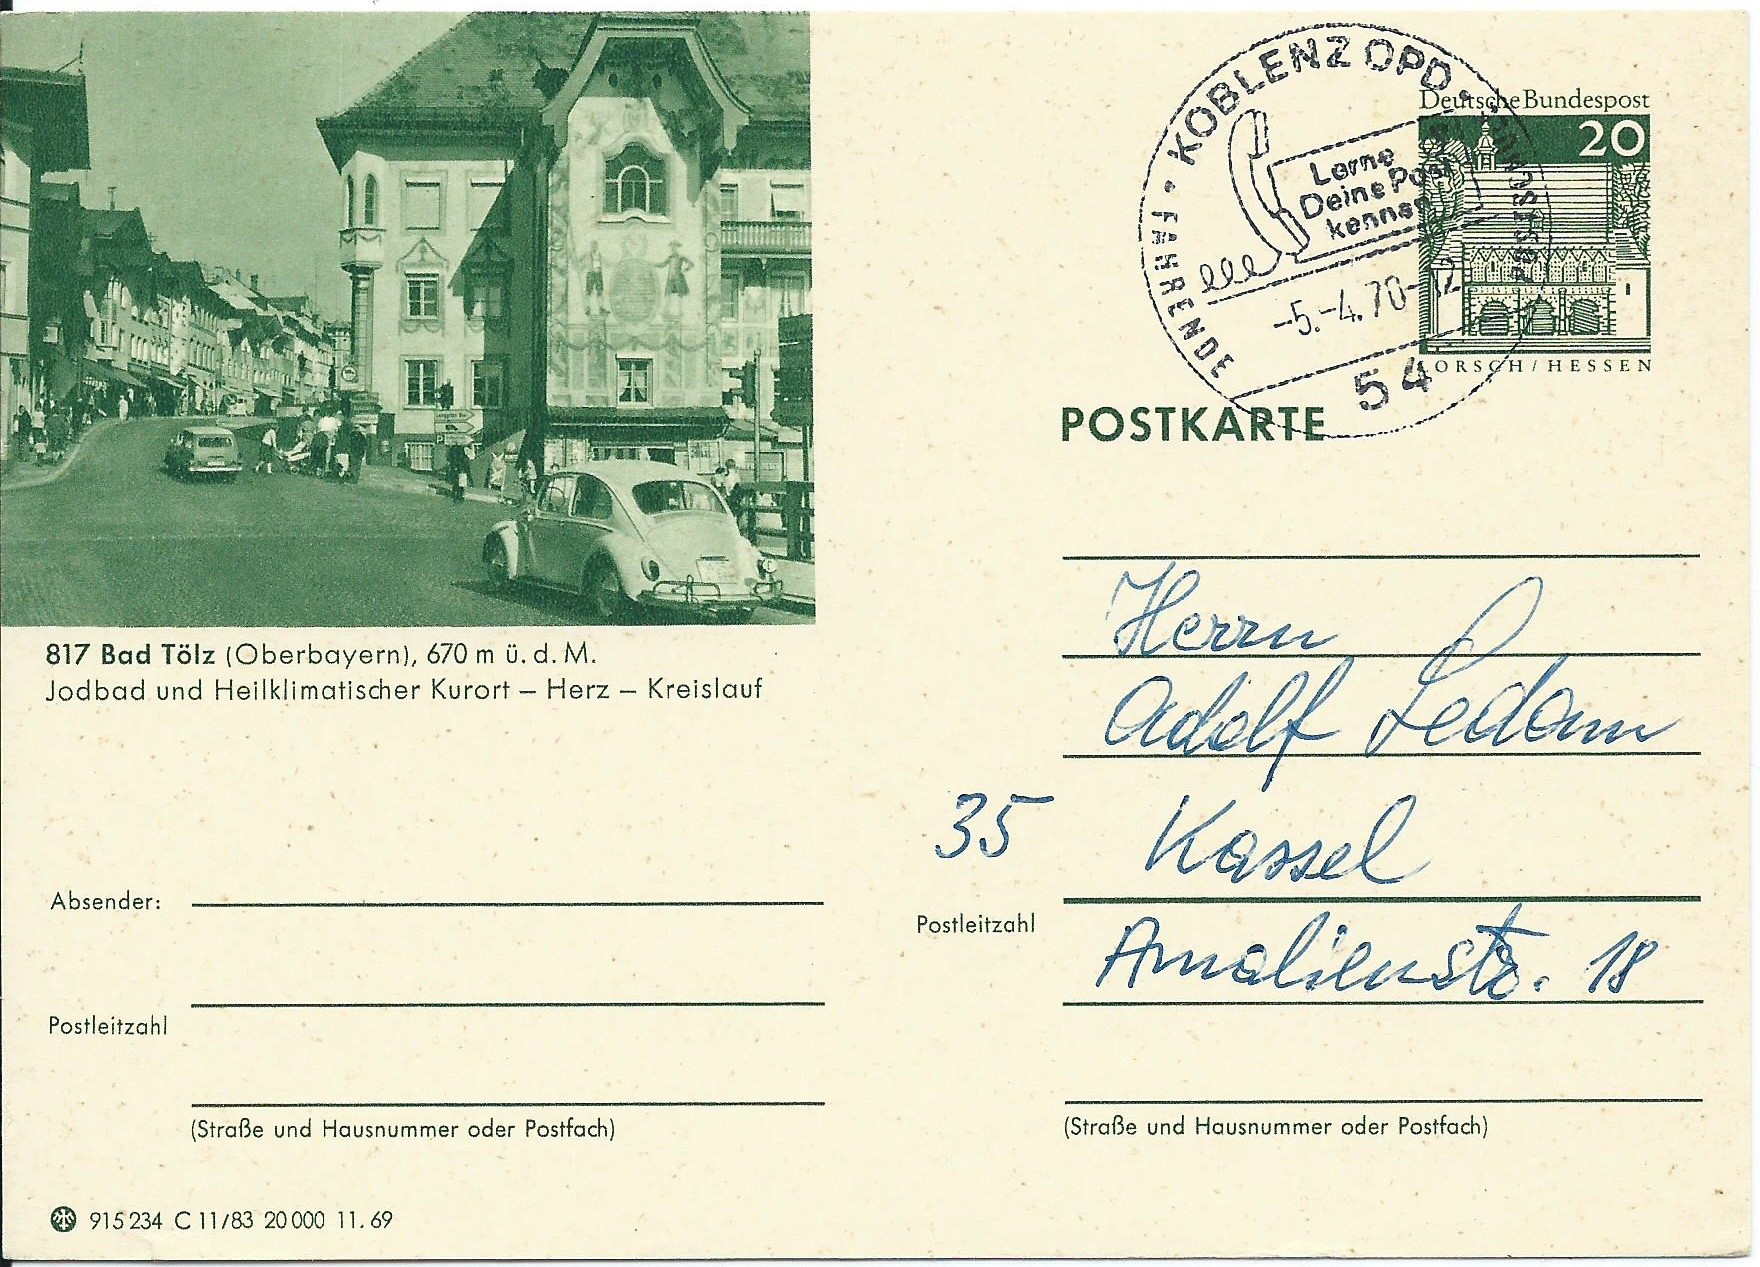 817 Bad Tölz (Oberbayern), 670 m ü. d. M.
Jodbad und Heilklimatischer Kurort – Herz – Kreislauf
Absender:
Postleitzahl
(Straße und Hausnummer oder Postfach)
915 234 C 11/83 20 000 11. 69
KOBLENZ OPD
FAHRENDE
Lerne
Deine Post
kennen
-5.-4.70-12
54
Deutsche Bundespost
20
LORSCH / HESSEN
POSTKARTE
Herrn
Adolf Ledam
35 Kassel
Postleitzahl
Amalienstr. 18
(Straße und Hausnummer oder Postfach)